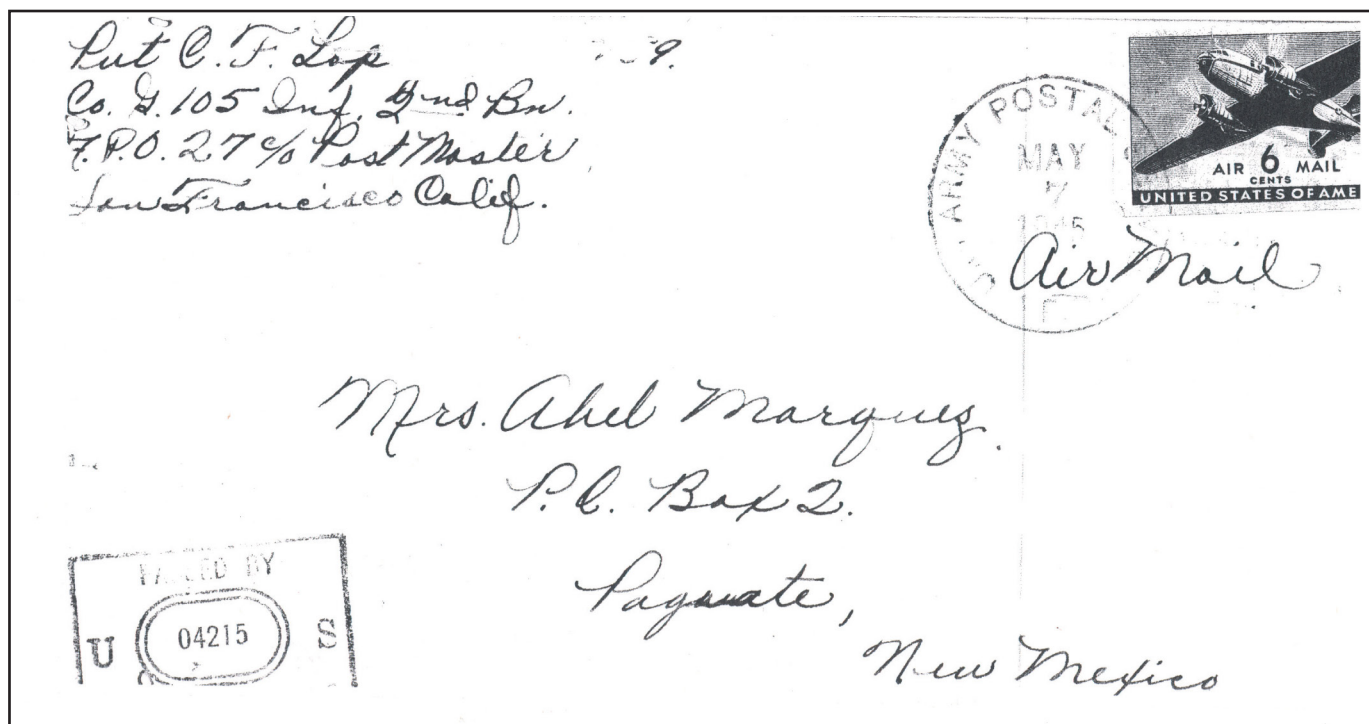 Pvt C. F. Lop
Co. G. 105 Inf. 2nd Bn.
A.P.O. 27 c/o Post Master
San Francisco Calif.
ARMY POSTAL
MAY
7
1945
AIR 6 MAIL
CENTS
UNITED STATES OF AME
Air Mail
Mrs. Abel Marquez.
P.O. Box 2.
Paguate,
New Mexico
PASSED BY
U 04215 S